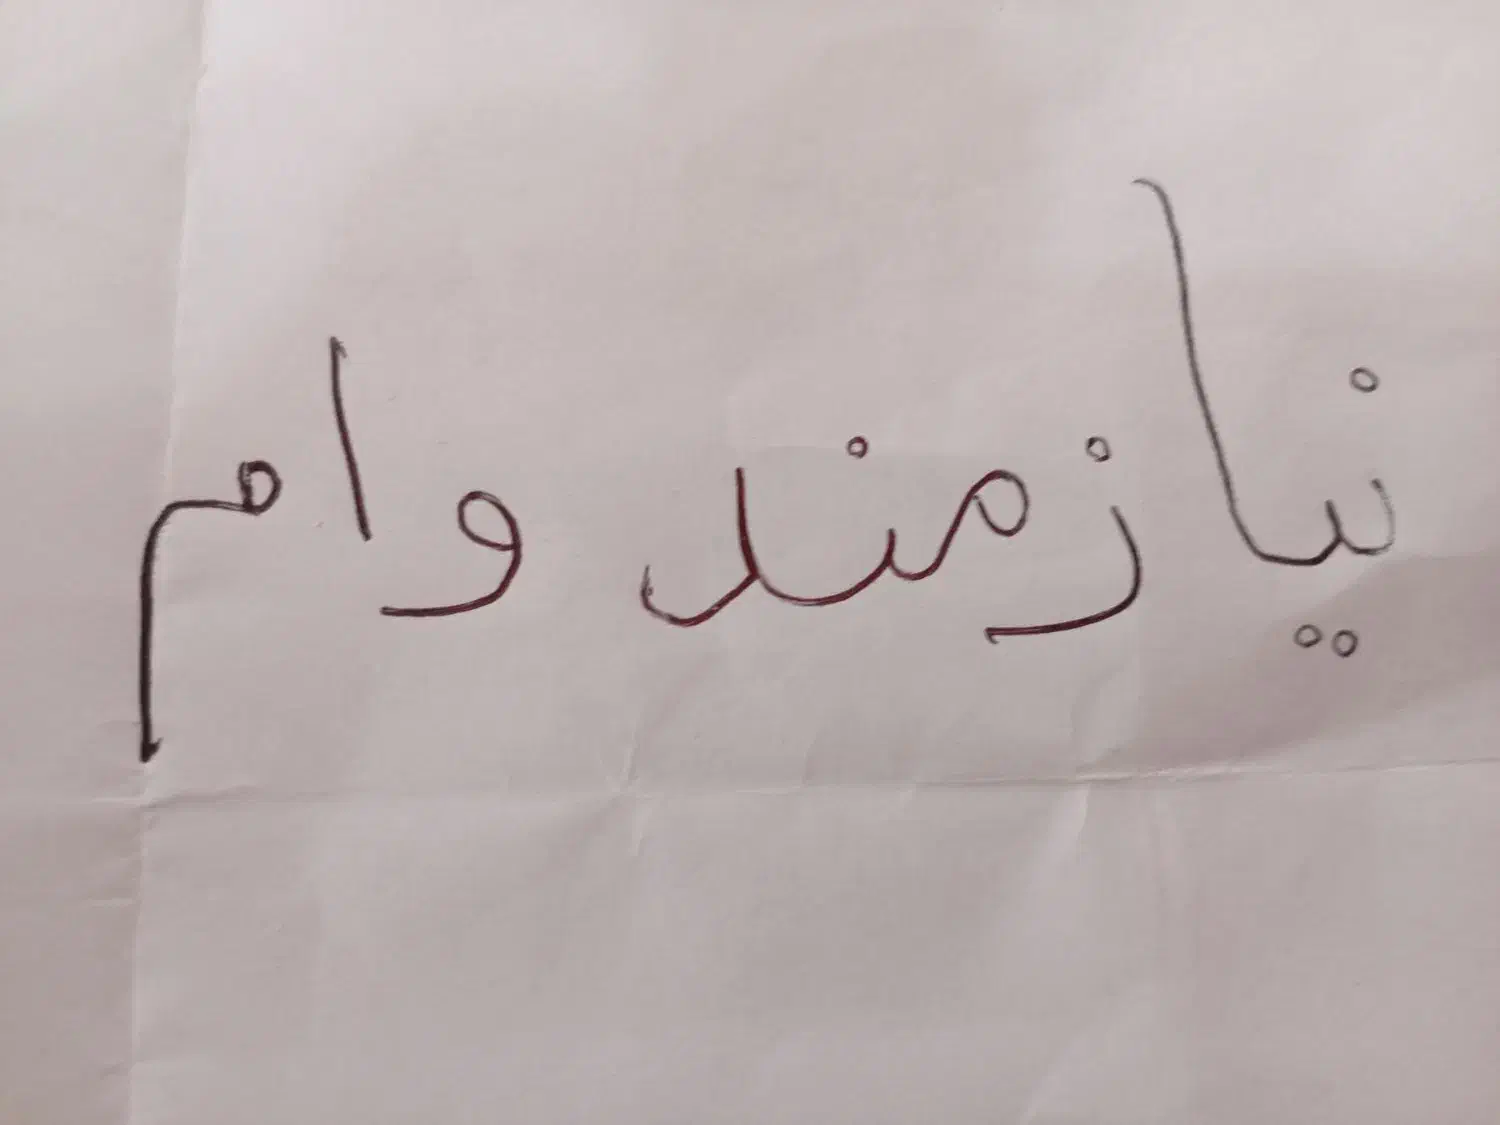 نیازمند وام